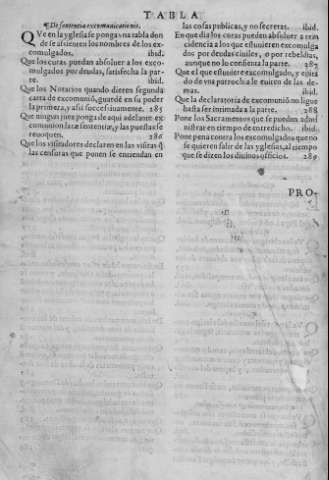 TABLA
¶ De sententia excomunicationis.
QVe en la yglesia se ponga vna tabla don
de se assienten los nombres de los ex-
comulgados. ibid.
Que los curas puedan absoluer a los exco-
mulgados por deudas, satisfecha la par-
te. ibid.
Que los Notarios quando dieren segunda
carta de excomunió, guardé en su poder
la primera, y assi successiuamente. 285
Que ningun juez ponga de aqui adelante ex
comunion latæ sententiæ, y las puestas se
reuoquen. 286
Que los visitadores declaren en las visitas q̃
las censuras que ponen se entiendan en
las cosas publicas, y no secretas. ibid.
En que dia los curas pueden absoluer a rein
cidencia a los que estuuieren excomulga
dos por deudas ciuiles, o por rebeldias,
aunque no lo consienta la parte. 287
Que el que estuuiere excomulgado, y euita
do de vna parrochia le euiten de las de-
mas. ibid.
Que la declaratoria de excomunió no ligue
hasta ser intimada a la parte. 288
Pone los Sacramentos que se pueden admi
nistrar en tiempo de entredicho. ibid.
Pone pena contra los excomulgados que no
se quieren salir de las yglesias, al tiempo
que se dizen los diuinos officios. 289
PRO-